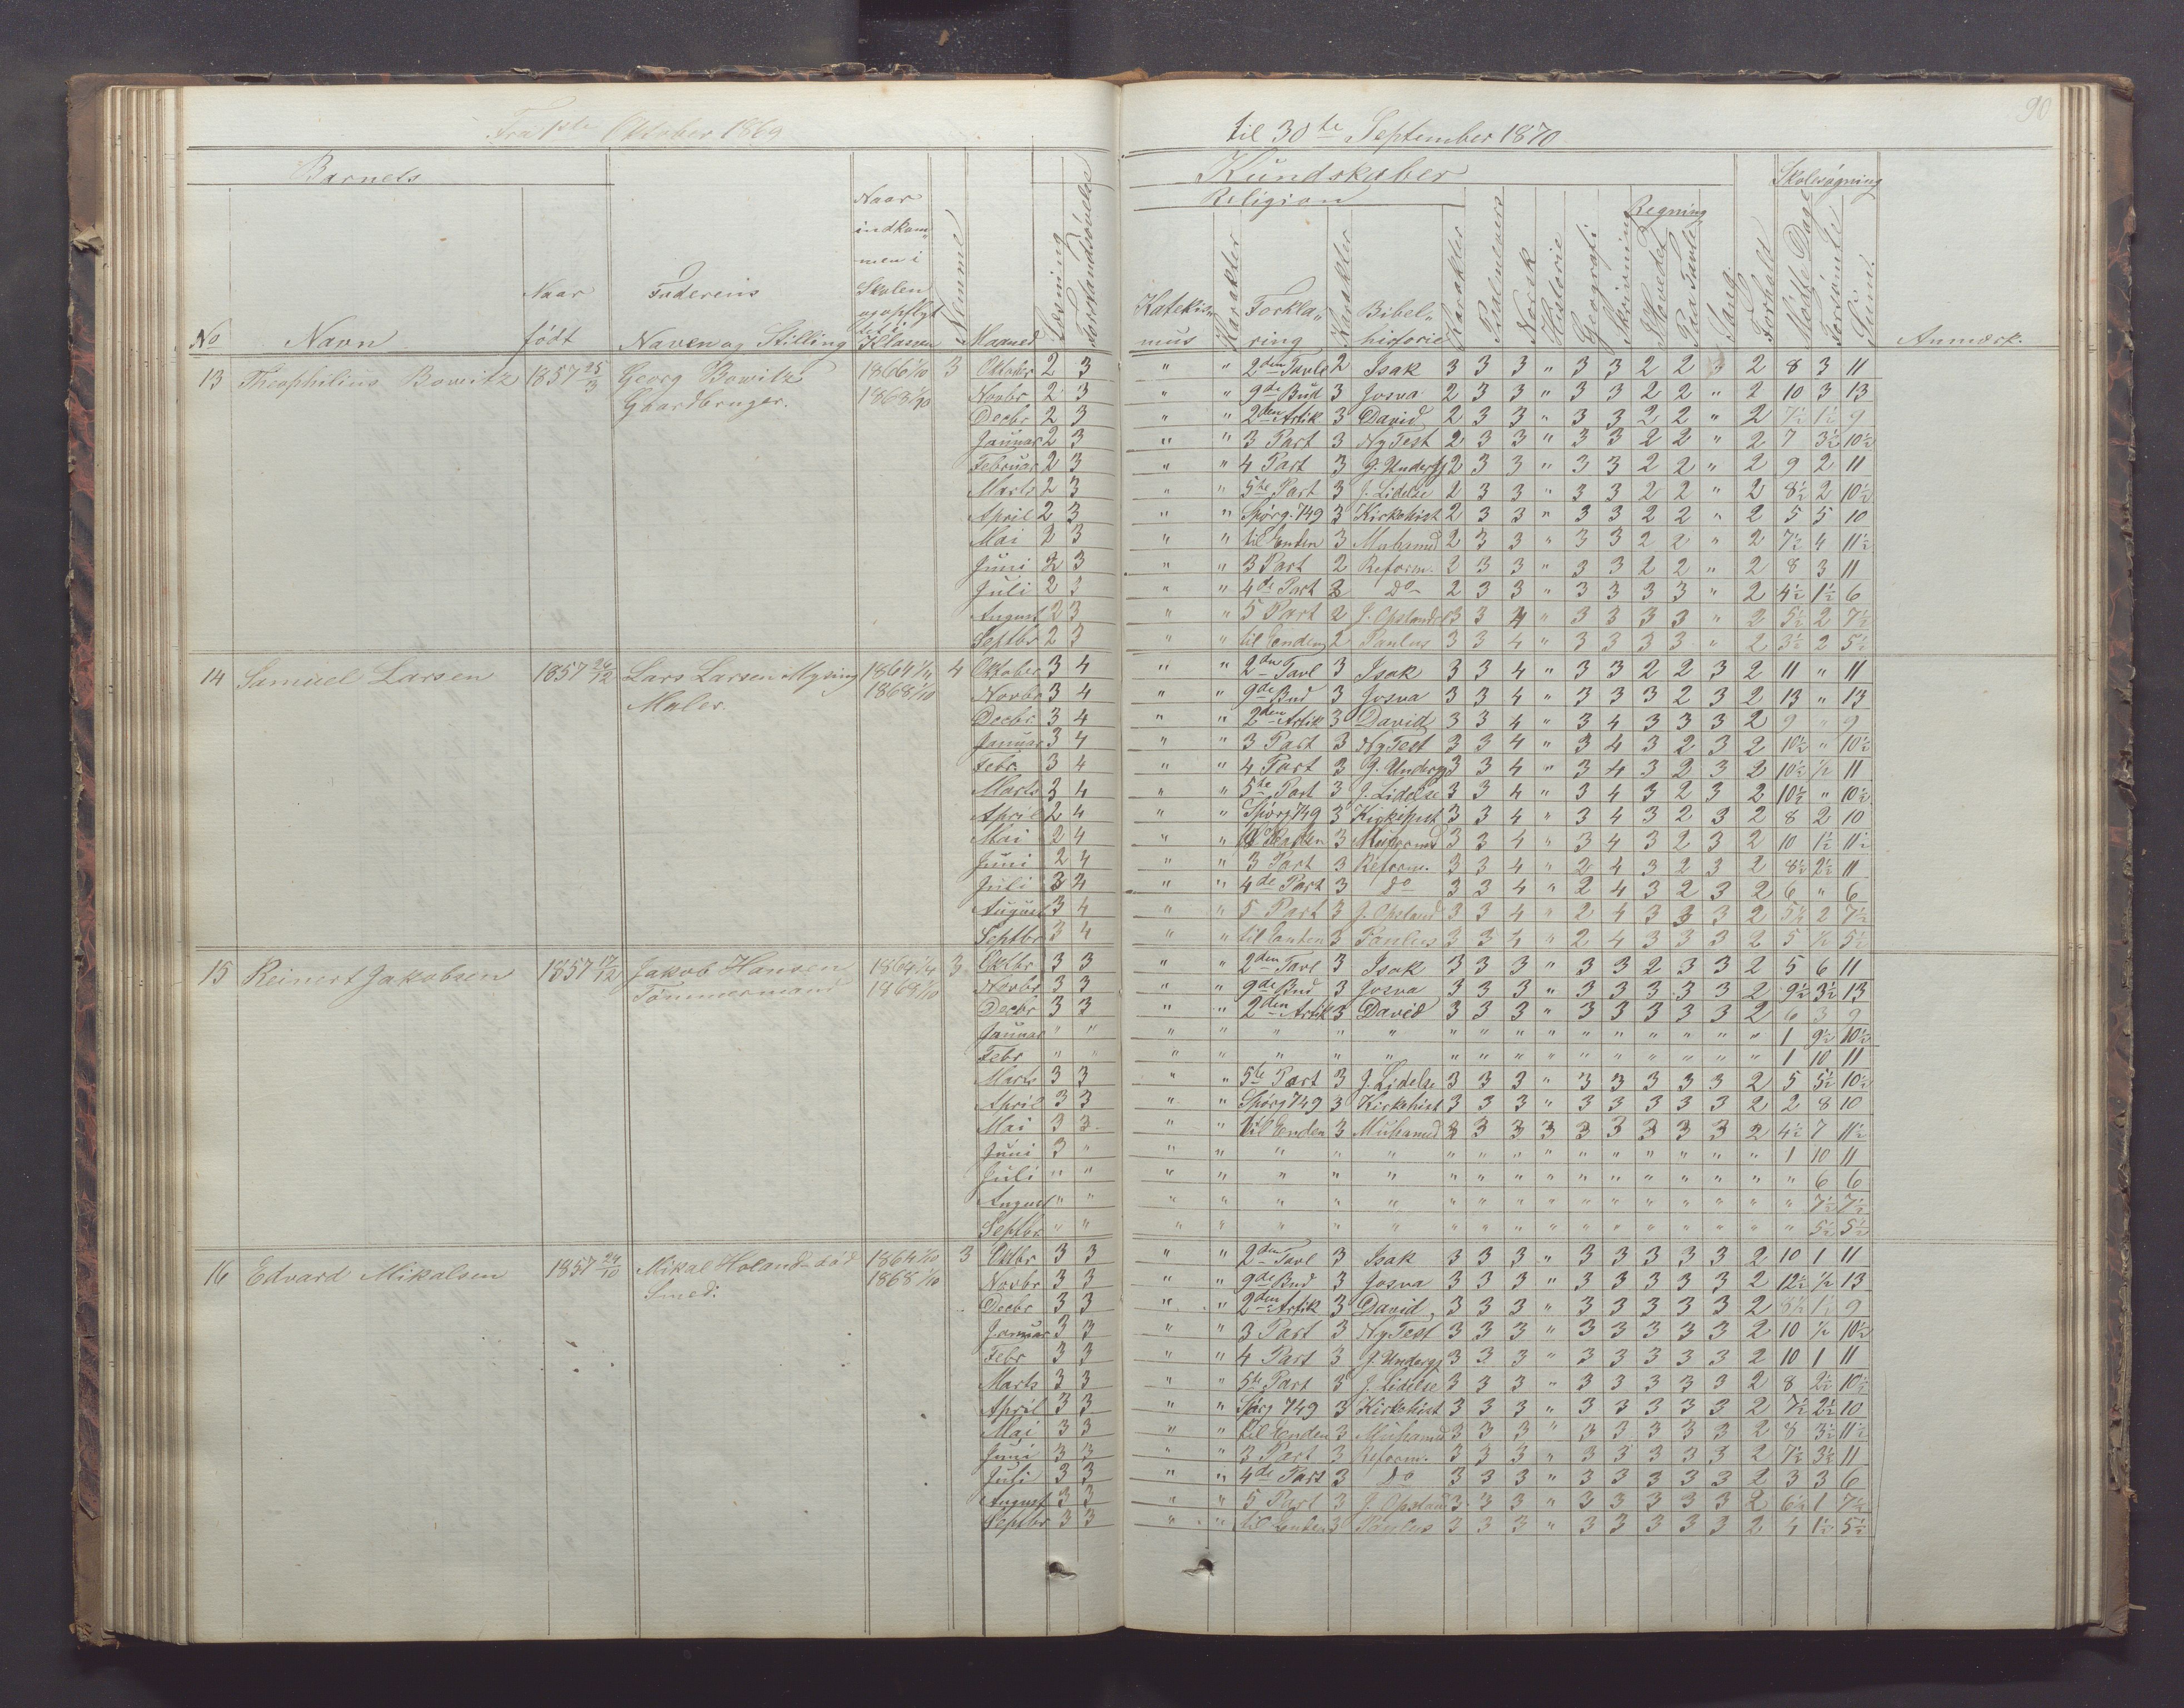 90
Fra 1ste Oktober 1869 til 30te September 1870
Barnets Kundskaber Skolesøgning
Religion Regning
No Navn Naar født Faderens Navn og Stilling Naar indkommen i Skolen og opflyttet i Klassen Nemme Maaned Læsning Forstandsøvelse Katekismus Karakter Forklaring Karakter Bibelhistorie Karakter Psalmevers Norsk Historie Geografi Skrivning I Hovedet Paa Tavle Sang Forhold Mødte Dage Forsømte Sum. Anmærk.
13 Theophilius Bowitz 1857 25/3 Georg Bowitz 1866 1/10 3 Oktober 2 3 " " 2den Tavle 2 Isak 3 3 3 " 3 3 2 2 " 2 8 3 11
Gaardbruger. 1868 1/10 Novbr 2 3 " " 9de Bud 3 Josva 2 3 3 " 3 3 2 2 " 2 10 3 13
Decbr 2 3 " " 2den Artik 3 David 2 3 3 " 3 3 2 2 " 2 7½ 1½ 9
Januar 2 3 " " 3 Part 3 Ny Test 2 3 3 " 3 3 2 2 " 2 7 3½ 10½
Februar 2 3 " " 4 Part 3 J. Undergj 2 3 3 " 3 3 2 2 " 2 9 2 11
Marts 2 3 " " 5te Part 3 J. Lidelse 2 3 3 " 3 3 2 2 " 2 8½ 2 10½
April 2 3 " " Spørg. 749 3 Kirkehist 2 3 3 " 3 3 2 2 " 2 5 5 10
Mai 2 3 " " til Enden 3 Muhamed 2 3 3 " 3 3 2 2 " 2 7½ 4 11½
Juni 2 3 " " 3 Part 2 Reform. 2 3 3 " 3 3 2 2 " 2 8 3 11
Juli 2 3 " " 4de Part 2 Do 2 3 3 " 3 3 3 3 " 2 4½ 1½ 6
August 2 3 " " 5 Part 2 J. Opstandel 3 3 4 " 3 3 3 3 " 2 5½ 2 7½
Septbr 2 3 " " til Enden 2 Paulus 3 3 4 " 3 3 3 3 " 2 3½ 2 5½
14 Samuel Larsen 1857 24/12 Lars Larsen Mysing 1864 4 Oktober 3 4 " " 2den Tavl 3 Isak 3 3 4 " 3 3 2 2 3 2 11 " 11
Maler. 1868 1/10 Novbr 3 4 " " 9de Bud 3 Josva 3 3 4 " 3 3 3 2 3 2 13 " 13
Decbr 3 4 " " 2den Artik 3 David 3 3 4 " 3 4 3 3 3 2 9 " 9
Januar 3 4 " " 3 Part 3 Ny Test 3 3 4 " 3 4 3 2 3 2 10½ " 10½
Febr. 3 4 " " 4 Part 3 J. Undergj 3 3 4 " 3 4 3 2 3 2 10½ ½ 11
Marts 3 4 " " 5te Part 3 J. Lidelse 3 3 4 " 3 4 3 2 3 2 10½ " 10½
April 2 4 " " Spørg 749 3 Kirkehist 3 3 4 " 3 4 3 2 3 2 8 2 10
Mai 2 4 " " til Enden 3 Muhamed 3 3 4 " 3 4 3 2 3 2 10 1½ 11½
Juni 2 4 " " 3 Part 3 Reform. 3 3 4 " 2 4 3 2 3 2 8½ 2½ 11
Juli 3 4 " " 4de Part 3 Do 3 3 4 " 2 4 3 2 3 2 6 " 6
August 3 4 " " 5 Part 3 J. Opstand 3 3 4 " 2 4 3 3 3 2 5½ 2 7½
Septbr 3 4 " " til Enden 3 Paulus 3 3 4 " 2 4 3 3 3 2 5 ½ 5½
15 Reinert Jakobsen 1857 17/12 Jakob Hansen 1864 1/4 3 Oktbr 3 3 " " 2den Tavl 3 Isak 3 3 3 " 3 3 2 3 3 2 5 6 11
Tømmermand 1868 1/10 Novbr 3 3 " " 9de Bud 3 Josva 3 3 3 " 3 3 3 3 3 2 9½ 3½ 13
Decbr 3 3 " " 2den Artik 3 David 3 3 3 " 3 3 3 3 3 2 6 3 9
Januar " " " " " " " " " " " " " " " " " 1 9½ 10½
Febr " " " " " " " " " " " " " " " " " " 1 10 11
Marts 3 3 " " 5te Part 3 J. Lidelse 3 3 3 " 3 3 3 3 3 2 5 5½ 10½
April 3 3 " " Spørg 749 3 Kirkehist 3 3 3 " 3 3 3 3 3 2 2 8 10
Mai 3 3 " " til Enden 3 Muhamed 3 3 3 3 3 3 3 3 3 2 4½ 7 11½
Juni 3 " " " " " " " " " " " " " " " " " 1 10 11
Juli " " " " " " " " " " " " " " " " " " " 6 6
August " " " " " " " " " " " " " " " " " " " 7½ 7½
Septbr " " " " " " " " " " " " " " " " " " " 5½ 5½
16 Edvard Mikalsen 1857 24/10 Mikal Holand død 1864 1/10 3 Oktbr 3 3 " " 2den Tavl 3 Isak 3 3 3 " 3 3 3 3 3 2 10 1 11
Smed. 1868 1/10 Novbr 3 3 " " 9de Bud 3 Josva 3 3 3 " 3 3 3 3 3 2 12½ ½ 13
Decbr 3 3 " " 2den Artik 3 David 3 3 3 " 3 3 3 3 3 2 1½ 9
Januar 3 3 " " 3 Part 3 Ny Test 3 3 3 " 3 3 3 3 3 2 10 ½ 10½
Febr 3 3 " " 4 Part 3 J. Undergj 3 3 3 " 3 3 3 3 3 2 10 1 11
Marts 3 3 " " 5te Part 3 J. Lidelse 3 3 3 " 3 3 3 3 3 2 8 2½ 10½
April 3 3 " " Spørg 749 3 Kirkehist 3 3 3 " 3 3 3 3 3 2 7½ 2½ 10
Mai 3 3 " " til Enden 3 Muhamed 3 3 3 " 3 3 3 3 3 2 8 3½ 11½
Juni 3 3 " " 3 Part 3 Reform. 3 3 3 " 3 3 3 3 3 2 7½ 3½ 11
Juli 3 3 " " 4de Part 3 Do 3 3 3 " 3 3 3 3 3 2 3 3 6
August 3 3 " " 5 Part 3 J. Opstan 3 3 3 " 3 3 3 3 3 2 6½ 1 7½
Septbr 3 3 " " til Enden 3 Paulus 3 3 3 " 3 3 3 3 3 2 4 1½ 5½